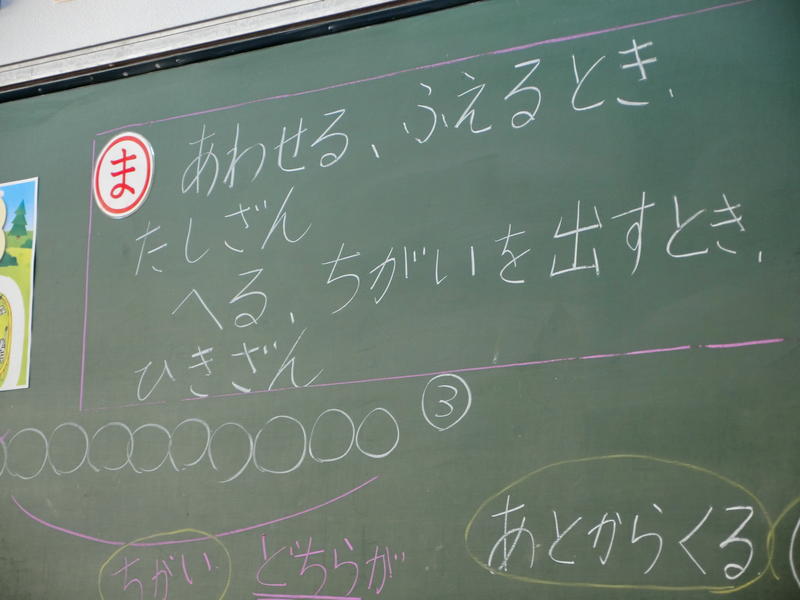 ま あわせる、ふえるとき、
たしざん
へる、ちがいを出すとき、
ひきざん
③
あとからくる
ちがい どちらが